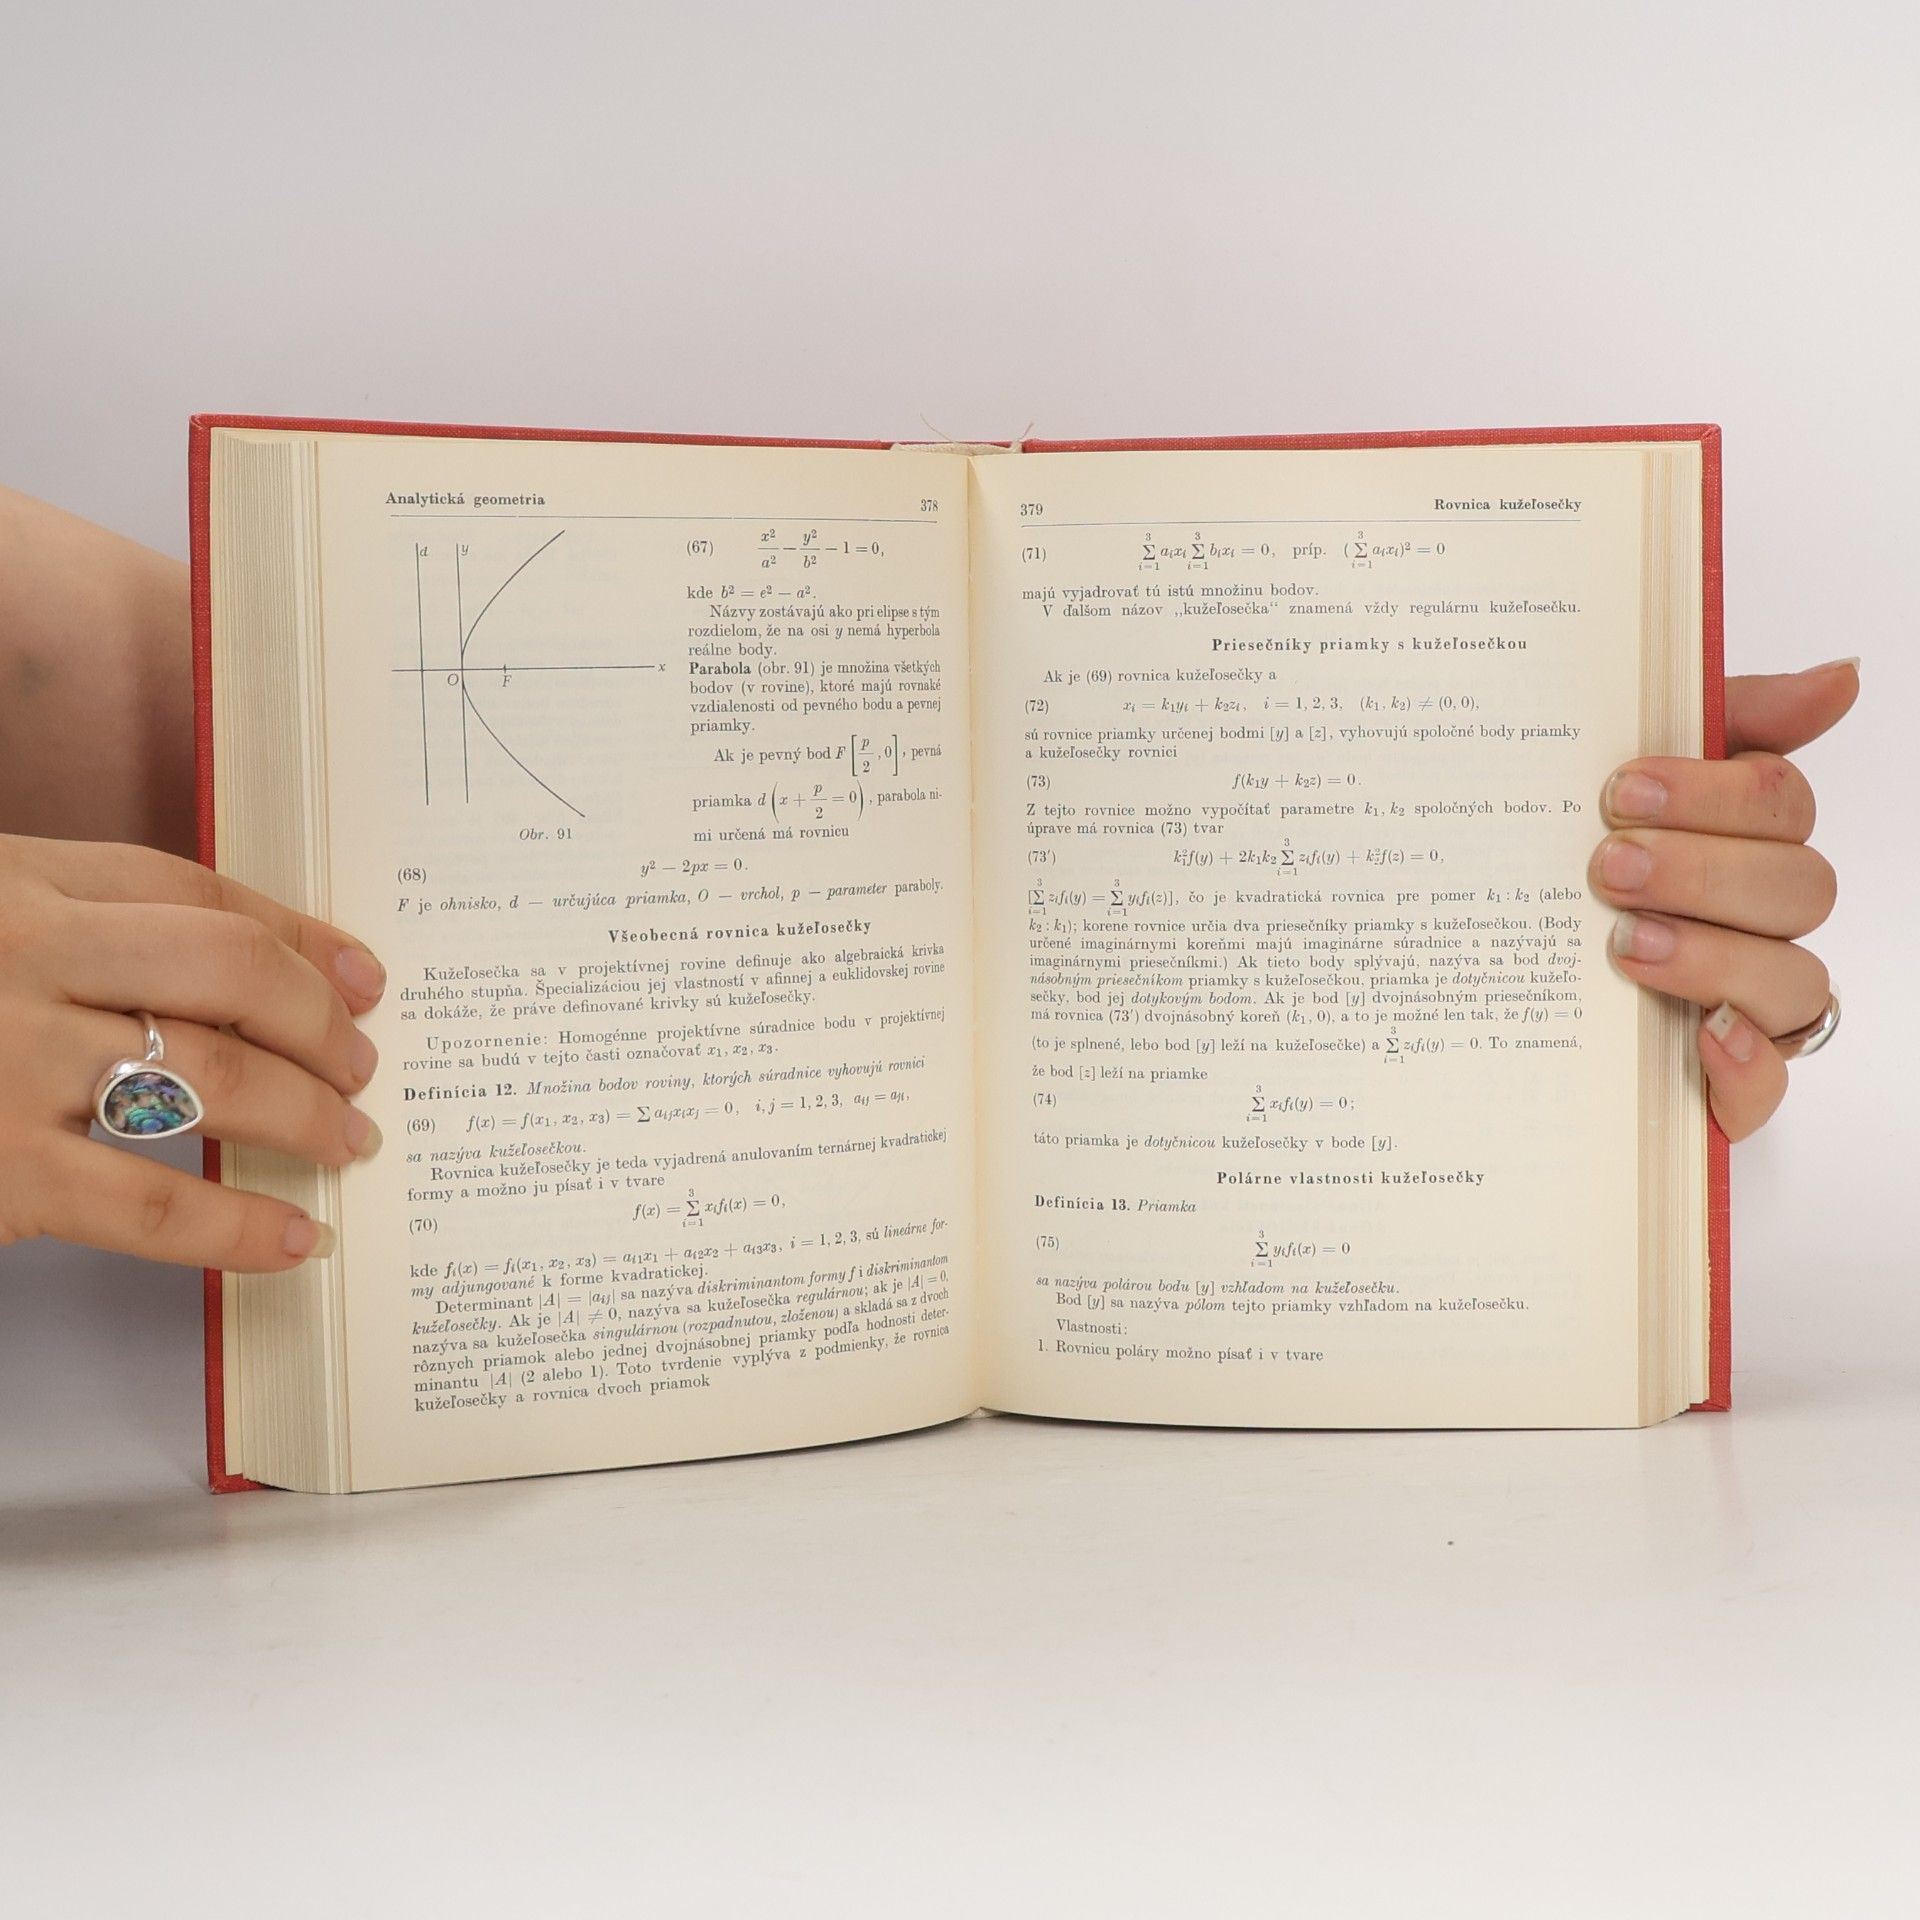 Analytická geometria 378
d y
x
O F
Obr. 91
(67) x²/a² − y²/b² − 1 = 0,
kde b² = e² − a².
Názvy zostávajú ako pri elipse s tým
rozdielom, že na osi y nemá hyperbola
reálne body.
Parabola (obr. 91) je množina všetkých
bodov (v rovine), ktoré majú rovnaké
vzdialenosti od pevného bodu a pevnej
priamky.
Ak je pevný bod F [p/2, 0], pevná
priamka d (x + p/2 = 0), parabola ni-
mi určená má rovnicu
(68) y² − 2px = 0.
F je ohnisko, d — určujúca priamka, O — vrchol, p — parameter paraboly.
Všeobecná rovnica kužeľosečky
Kužeľosečka sa v projektívnej rovine definuje ako algebraická krivka
druhého stupňa. Špecializáciou jej vlastností v afinnej a euklidovskej rovine
sa dokáže, že práve definované krivky sú kužeľosečky.
Upozornenie: Homogénne projektívne súradnice bodu v projektívnej
rovine sa budú v tejto časti označovať x₁, x₂, x₃.
Definícia 12. Množina bodov roviny, ktorých súradnice vyhovujú rovnici
(69) f(x) = f(x₁, x₂, x₃) = ∑ aᵢⱼxᵢxⱼ = 0, i, j = 1, 2, 3, aᵢⱼ = aⱼᵢ,
sa nazýva kužeľosečkou.
Rovnica kužeľosečky je teda vyjadrená anulovaním ternárnej kvadratickej
formy a možno ju písať i v tvare
(70) f(x) = ∑³ᵢ₌₁ xᵢfᵢ(x) = 0,
kde fᵢ(x) = fᵢ(x₁, x₂, x₃) = aᵢ₁x₁ + aᵢ₂x₂ + aᵢ₃x₃, i = 1, 2, 3, sú lineárne for-
my adjungované k forme kvadratickej.
Determinant |A| = |aᵢⱼ| sa nazýva diskriminantom formy f i diskriminantom
kužeľosečky. Ak je |A| ≠ 0, nazýva sa kužeľosečka regulárnou; ak je |A| = 0,
nazýva sa kužeľosečka singulárnou (rozpadnutou, zloženou) a skladá sa z dvoch
rôznych priamok alebo jednej dvojnásobnej priamky podľa hodnosti deter-
minantu |A| (2 alebo 1). Toto tvrdenie vyplýva z podmienky, že rovnica
kužeľosečky a rovnica dvoch priamok
379 Rovnica kužeľosečky
(71) ∑³ᵢ₌₁ aᵢxᵢ ∑³ᵢ₌₁ bᵢxᵢ = 0, príp. (∑³ᵢ₌₁ aᵢxᵢ)² = 0
majú vyjadrovať tú istú množinu bodov.
V ďalšom názov „kužeľosečka“ znamená vždy regulárnu kužeľosečku.
Priesečníky priamky s kužeľosečkou
Ak je (69) rovnica kužeľosečky a
(72) xᵢ = k₁yᵢ + k₂zᵢ, i = 1, 2, 3, (k₁, k₂) ≠ (0, 0),
sú rovnice priamky určenej bodmi [y] a [z], vyhovujú spoločné body priamky
a kužeľosečky rovnici
(73) f(k₁y + k₂z) = 0.
Z tejto rovnice možno vypočítať parametre k₁, k₂ spoločných bodov. Po
úprave má rovnica (73) tvar
(73′) k₁²f(y) + 2k₁k₂ ∑³ᵢ₌₁ zᵢfᵢ(y) + k₂²f(z) = 0,
[∑³ᵢ₌₁ zᵢfᵢ(y) = ∑³ᵢ₌₁ yᵢfᵢ(z)], čo je kvadratická rovnica pre pomer k₁ : k₂ (alebo
k₂ : k₁); korene rovnice určia dva priesečníky priamky s kužeľosečkou. (Body
určené imaginárnymi koreňmi majú imaginárne súradnice a nazývajú sa
imaginárnymi priesečníkmi.) Ak tieto body splývajú, nazýva sa bod dvoj-
násobným priesečníkom priamky s kužeľosečkou, priamka je dotyčnicou kužeľo-
sečky, bod jej dotykovým bodom. Ak je bod [y] dvojnásobným priesečníkom,
má rovnica (73′) dvojnásobný koreň (k₁, 0), a to je možné len tak, že f(y) = 0
(to je splnené, lebo bod [y] leží na kužeľosečke) a ∑³ᵢ₌₁ zᵢfᵢ(y) = 0. To znamená,
že bod [z] leží na priamke
(74) ∑³ᵢ₌₁ xᵢfᵢ(y) = 0;
táto priamka je dotyčnicou kužeľosečky v bode [y].
Polárne vlastnosti kužeľosečky
Definícia 13. Priamka
(75) ∑³ᵢ₌₁ yᵢfᵢ(x) = 0
sa nazýva polárou bodu [y] vzhľadom na kužeľosečku.
Bod [y] sa nazýva pólom tejto priamky vzhľadom na kužeľosečku.
Vlastnosti:
1. Rovnicu poláry možno písať i v tvare